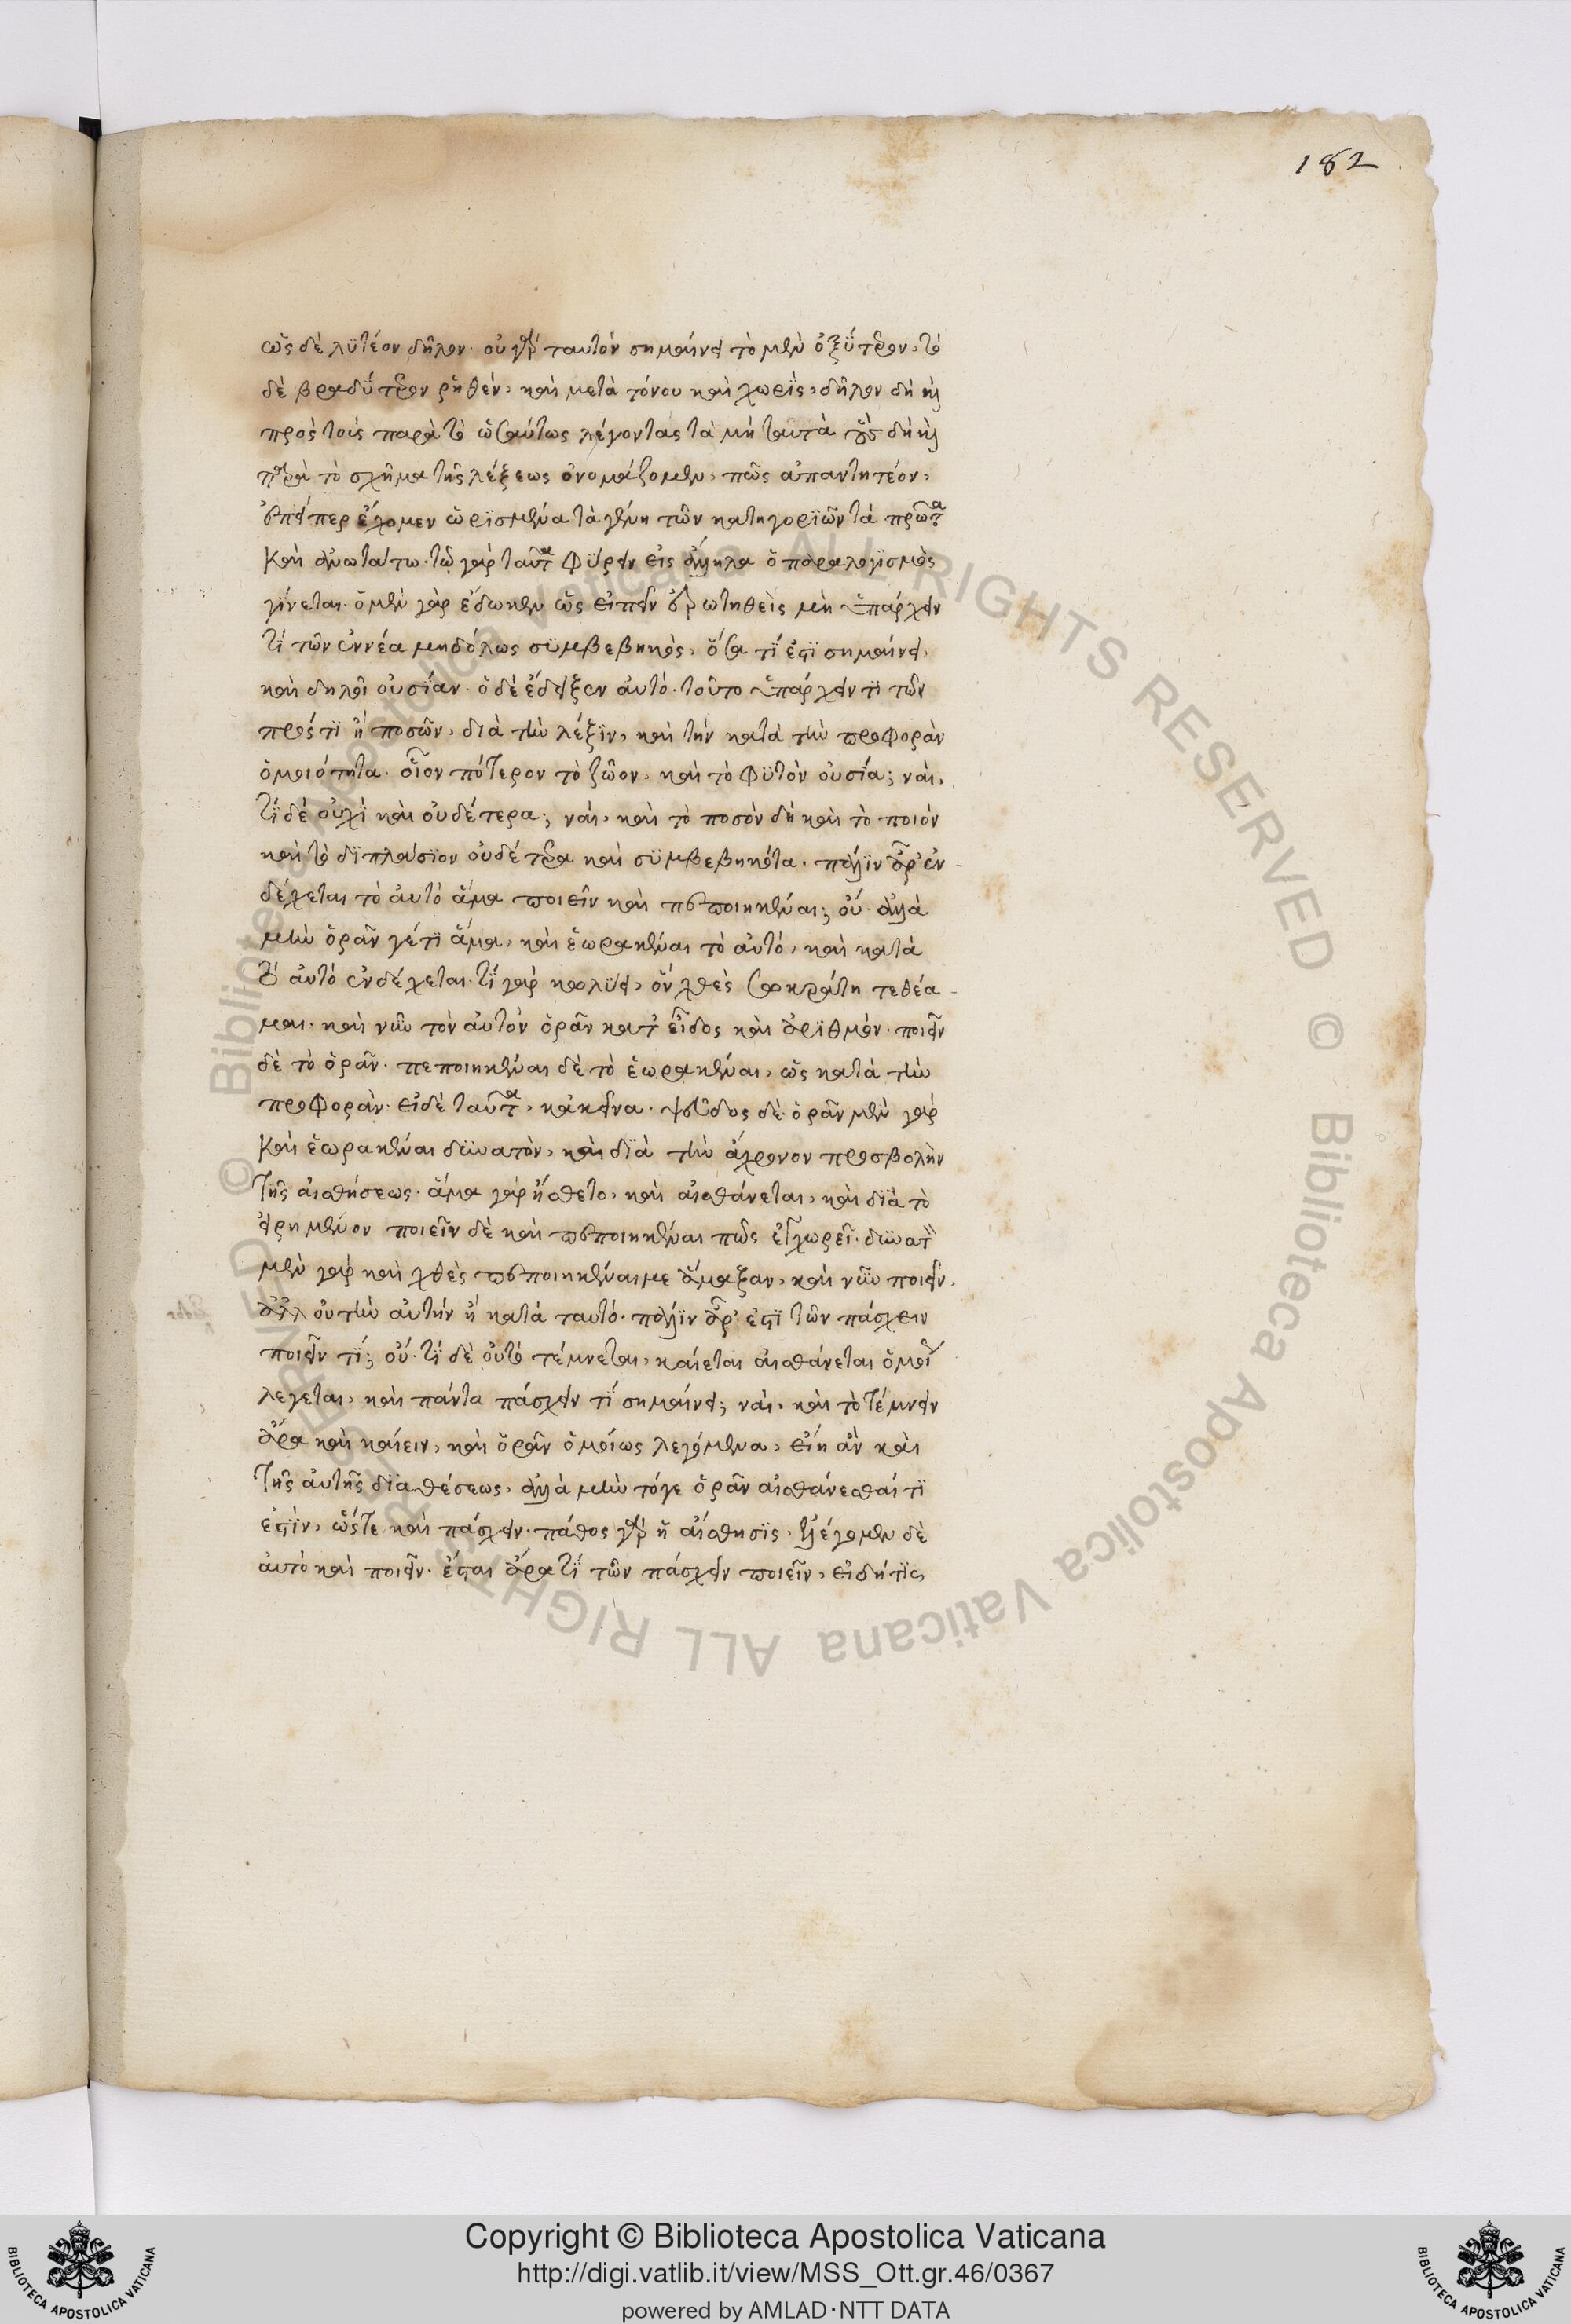 182
ὡς δὲ λυτέον δῆλον· οὐ γὰρ ταυτὸν σημαίνει τὸ μὲν ὀξύτερον, τὸ
δὲ βραδύτερον ῥηθέν, καὶ μετὰ τόνου καὶ χωρίς, δῆλον δὴ καὶ
πρὸς τοὺς παρὰ τὸ ὡσαύτως λέγοντας τὰ μὴ ταυτὰ δὴ καὶ
παρὰ τὸ σχῆμα τῆς λέξεως ὀνομάζομεν, πῶς ἀπαντητέον,
ἐπείπερ ἔχομεν ὡρισμένα τὰ γένη τῶν κατηγοριῶν τὰ πρῶτα
καὶ ἀνωτάτω· τῷ γὰρ ταῦτα φύρειν εἰς ἄλληλα ὁ παραλογισμὸς
γίνεται· ὁ μὲν γὰρ ἔδωκεν ὡς εἰπεῖν ἐρωτηθεὶς μὴ ὑπάρχειν
τί τῶν ἐννέα μηδόλως συμβεβηκὸς, ὅσα τί ἐστι σημαίνει,
καὶ δηλοῖ οὐσίαν· ὁ δὲ ἔδειξεν αὐτὸ τοῦτο ὑπάρχειν τι τῶν
πρός τι ἢ ποσῶν, διὰ τὴν λέξιν, καὶ τὴν κατὰ τὴν προφορὰν
ὁμοιότητα· οἷον πότερον τὸ ζῶον, καὶ τὸ φυτὸν οὐσία; ναί,
τί δὲ οὐχὶ καὶ οὐδέτερα; ναί, καὶ τὸ ποσὸν δὴ καὶ τὸ ποιὸν
καὶ τὸ διπλάσιον οὐδέτερα καὶ συμβεβηκότα· πάλιν ἆρ' ἐν-
δέχεται τὸ αὐτὸ ἅμα ποιεῖν καὶ πεποιηκέναι; οὔ· ἀλλὰ
μὴν ὁρᾶν γέ τι ἅμα, καὶ ἑωρακέναι τὸ αὐτό, καὶ κατὰ
τὸ αὐτὸ ἐνδέχεται· τί γὰρ κωλύει, ὃν χθὲς Σωκράτη τεθέα-
μαι· καὶ νῦν τὸν αὐτὸν ὁρᾶν κατ' εἶδος καὶ ἀριθμόν· ποιεῖν
δὲ τὸ ὁρᾶν· πεποιηκέναι δὲ τὸ ἑωρακέναι, ὡς κατὰ τὴν
προφοράν· εἰ δὲ ταῦτα, κἀκεῖνα· ψεῦδος δέ· ὁρᾶν μὲν γὰρ
καὶ ἑωρακέναι δυνατόν, καὶ διὰ τὴν ἄχρονον προσβολὴν
τῆς αἰσθήσεως· ἅμα γὰρ ᾔσθετο, καὶ αἰσθάνεται, καὶ διὰ τὸ
εἰρημένον ποιεῖν δὲ καὶ πεποιηκέναι πῶς ἐγχωρεῖ· δυνατὸν
μὲν γὰρ καὶ χθὲς πεποιηκέναι με ἅμαξαν, καὶ νῦν ποιεῖν,
ἀλλ' οὐ τὴν αὐτὴν ἢ κατὰ ταυτό· πάλιν ἆρ' ἐστὶ τῶν πάσχειν
ποιεῖν τί; οὔ· τί δὲ οὐ τὸ τέμνεται, καίεται αἰσθάνεται ὁμοίως
λέγεται, καὶ πάντα πάσχειν τί σημαίνει; ναί, καὶ τὸ τέμνειν
ἄρα καὶ καίειν, καὶ ὁρᾶν ὁμοίως λεγόμενα, εἴη ἂν καὶ
τῆς αὐτῆς διαθέσεως, ἀλλὰ μὴν τό γε ὁρᾶν αἰσθάνεσθαί τι
ἐστίν, ὥστε καὶ πάσχειν· πάθος γὰρ ἡ αἴσθησις, λέγομεν δὲ
αὐτὸ καὶ ποιεῖν· ἔσται ἄρα τί τῶν πάσχειν ποιεῖν, εἰ δή τις
Copyright © Biblioteca Apostolica Vaticana
http://digi.vatlib.it/view/MSS_Ott.gr.46/0367
powered by AMLAD·NTT DATA
BIBLIOTECA APOSTOLICA VATICANA
BIBLIOTECA APOSTOLICA VATICANA
© Biblioteca Apostolica Vaticana ALL RIGHTS RESERVED © Biblioteca Apostolica Vaticana ALL RIGHTS RESERVED